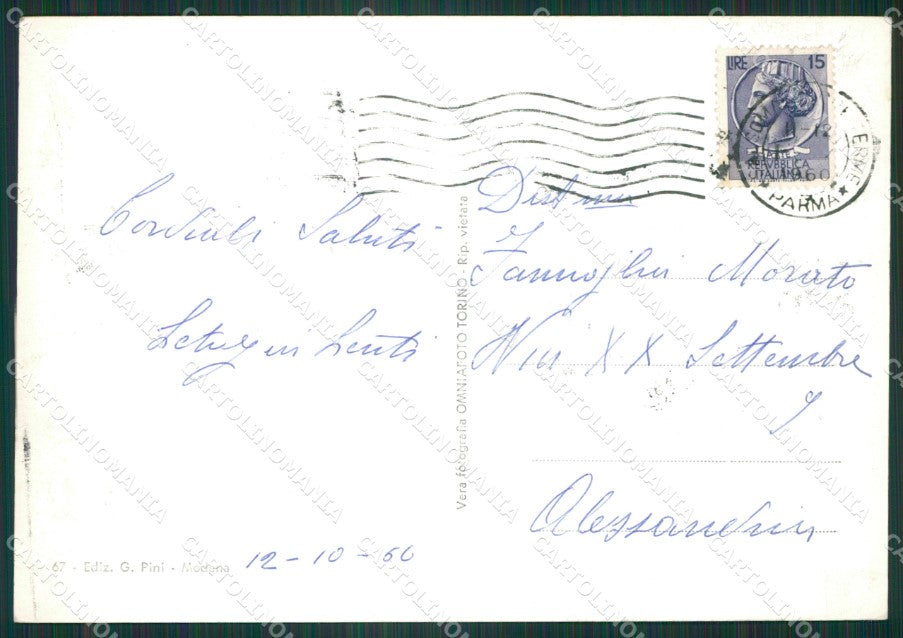 LIRE 15
REPVBBLICA
ITALIANA
PARMA
Cordiali Saluti
Lenti
Dist
Famiglia Morato
Via XX Settembre
9
Alessandria
12-10-60
67 - Ediz. G. Pini - Modena
Vera fotografia OMNIAFOTO TORINO - Rip. vietata
CARTOLINOMANIA